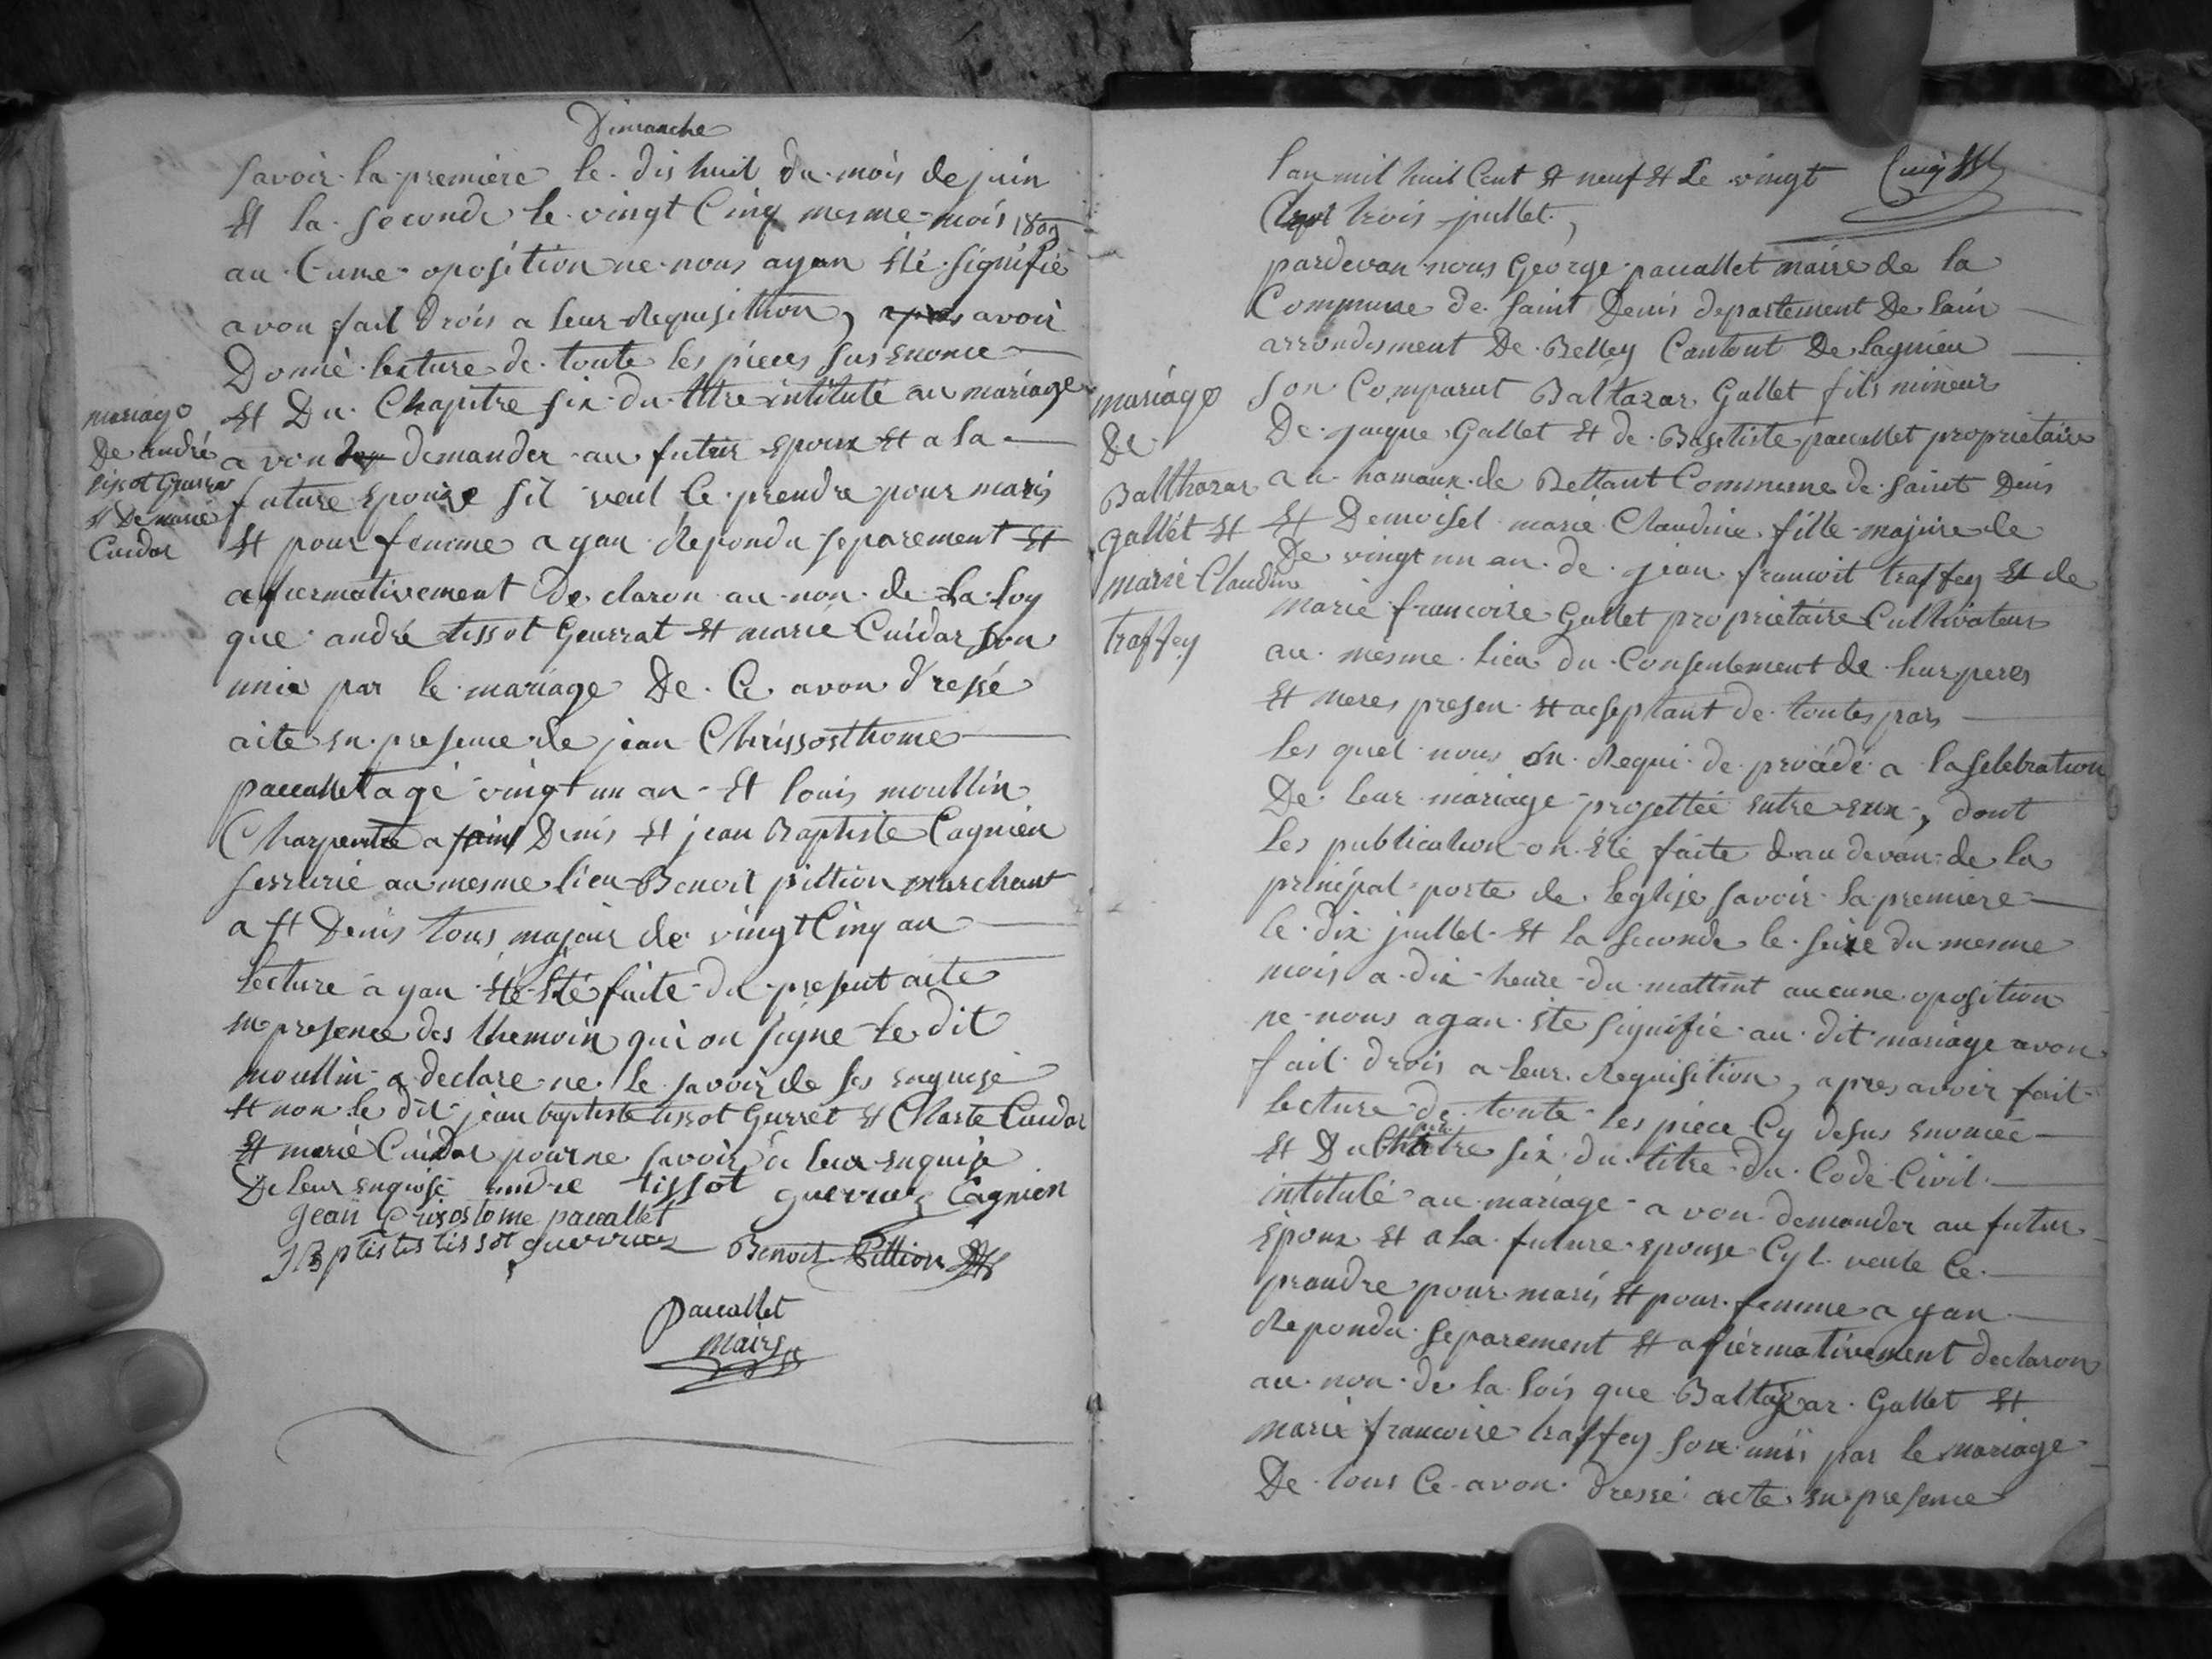 Dimanche
savoir la premiere le dis huit du mois de juin
Et la seconde le vingt Cinq mesme mois 1809
au Cune oposition ne nous ayan Eté signifié
avon fait drois a leur Requisition, apres avoir
Donné lecture de toute les pieces sus enonce
Et Du Chapitre six du titre intitulé au mariage
avon demander au futur Epoux Et a la
future Epouse sil veul ce prendre pour maris
Et pour femme ayan Repondu separement Et
afiermativement De claron au non de La Loy
que andré tissot Geurrat Et marie Cuidar son
unie par le mariage De Ce avon dressé
acte en presence de jean Chrissosthome
paccallet agé vingt un an Et louis moullin
Charpentie a saint Denis Et jean Baptiste Cagnien
serrurié au mesme lieu Benoit pittion marchant
a st Denis tous majeur de vingt Cinq an
Lecture ayan Eté Eté faite du present acte
en presence des themoin qui on signe Le dit
moullin a declare ne le savoir de ses enquise
Et non le dit jean baptiste tissot Gurret Et Charte Cuidar
Et marie Cuidar pour ne savoir a leur enquise
De leur enquise andre tissot guerraz Cagnien
jean Crisostome paccallet
J B ptiste tissot guerraz Benoit Pittion
Paccallet
Maire
mariage
De andré
tissot Gurra
Et De marie
Cuidar
Lan mil huit Cent Et neuf Et Le vingt
trois jullet,
pardevan nous George paccallet maire de la
Commune de saint Denis departement De lain
arrondisment De Belley Cantont De lagnieu
son Comparut Baltazar Gallet fils mineur
De jacque Gallet Et de Baptiste paccallet proprietaire
au hamaux de Bettant Commune de saint Denis
Et Demoisel marie Claudine fille majure de
De vingt un an de jean francoit traffey Et de
marie francoise Gallet proprietaire Cultivateur
au mesme lieu du Consentement de leur peres
Et meres presen Et acseptant de toutes pars
les quel nous on Requi de procédé a la selebration
De leur mariage projettée entre eux, dont
les publication on Eté faite dau devan de la
principal porte de leglise savoir la premiere
le dix jullet Et la seconde le seize du mesme
mois a dix heure du mattint aucune oposition
ne nous ayan ete signifié au dit mariage avon
fait drois a leur Requisition, apres avoir fait
lecture de toute les piece Cy desus enoncée
Et Du Chapitre six du titre du Code Civil
intitulé au mariage avon demander au futur
Epoux Et a la future epouse Cyl veule Ce
prandre pour maris Et pour femme ayan
Repondu separement Et afiermativement declaron
au non de la lois que Baltazar Gallet Et
marie francoise traffey son unii par le mariage
De tous Ce avon dressé acte en presence
mariage
De
Balthazar
gallét Et
marie Claudine
traffey